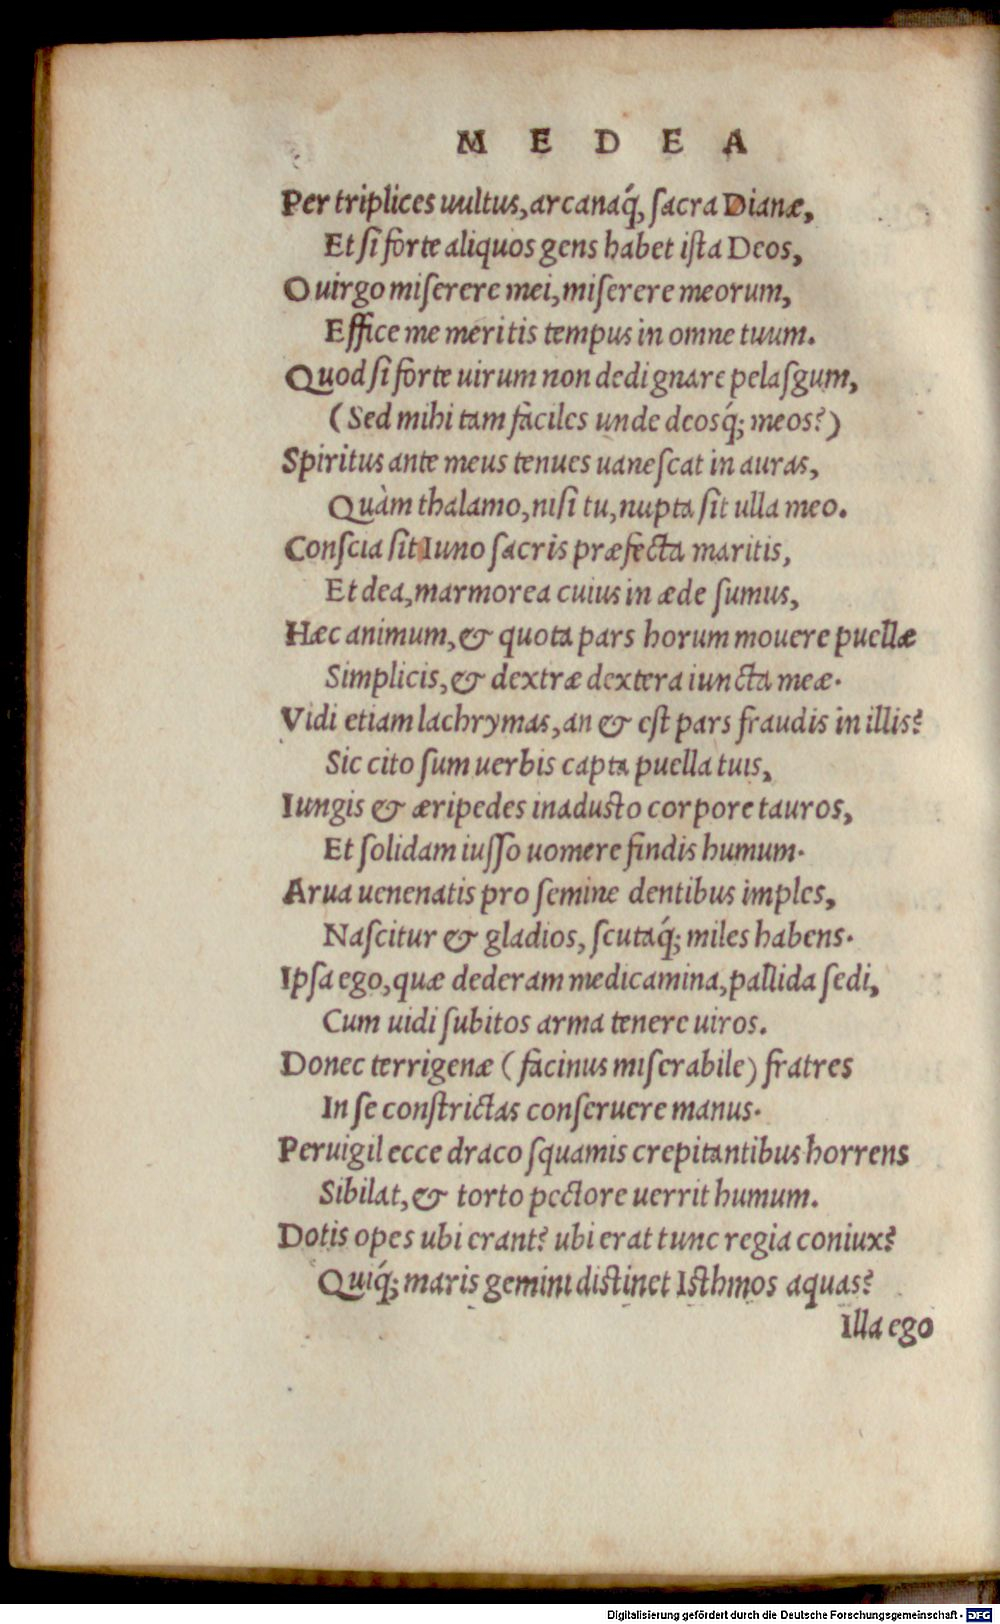 M E D E A
Per triplices uultus, arcanaq́; sacra Dianæ,
Et si forte aliquos gens habet ista Deos,
O uirgo miserere mei, miserere meorum,
Effice me meritis tempus in omne tuum.
Quod si forte uirum non dedignare pelasgum,
(Sed mihi tam faciles unde deosq́; meos?)
Spiritus ante meus tenues uanescat in auras,
Quàm thalamo, nisi tu, nupta sit ulla meo.
Conscia sit Iuno sacris præfecta maritis,
Et dea, marmorea cuius in æde sumus,
Hæc animum, & quota pars horum mouere puellæ
Simplicis, & dextræ dextera iuncta meæ.
Vidi etiam lachrymas, an & est pars fraudis in illis?
Sic cito sum uerbis capta puella tuis,
Iungis & æripedes inadusto corpore tauros,
Et solidam iusso uomere findis humum.
Arua uenenatis pro semine dentibus imples,
Nascitur & gladios, scutaq́; miles habens.
Ipsa ego, quæ dederam medicamina, pallida sedi,
Cum uidi subitos arma tenere uiros.
Donec terrigenæ (facinus miserabile) fratres
In se constrictas conseruere manus.
Peruigil ecce draco squamis crepitantibus horrens
Sibilat, & torto pectore uerrit humum.
Dotis opes ubi erant? ubi erat tunc regia coniux?
Quiq́; maris gemini distinet Isthmos aquas?
Illa ego
Digitalisierung gefördert durch die Deutsche Forschungsgemeinschaft - DFG